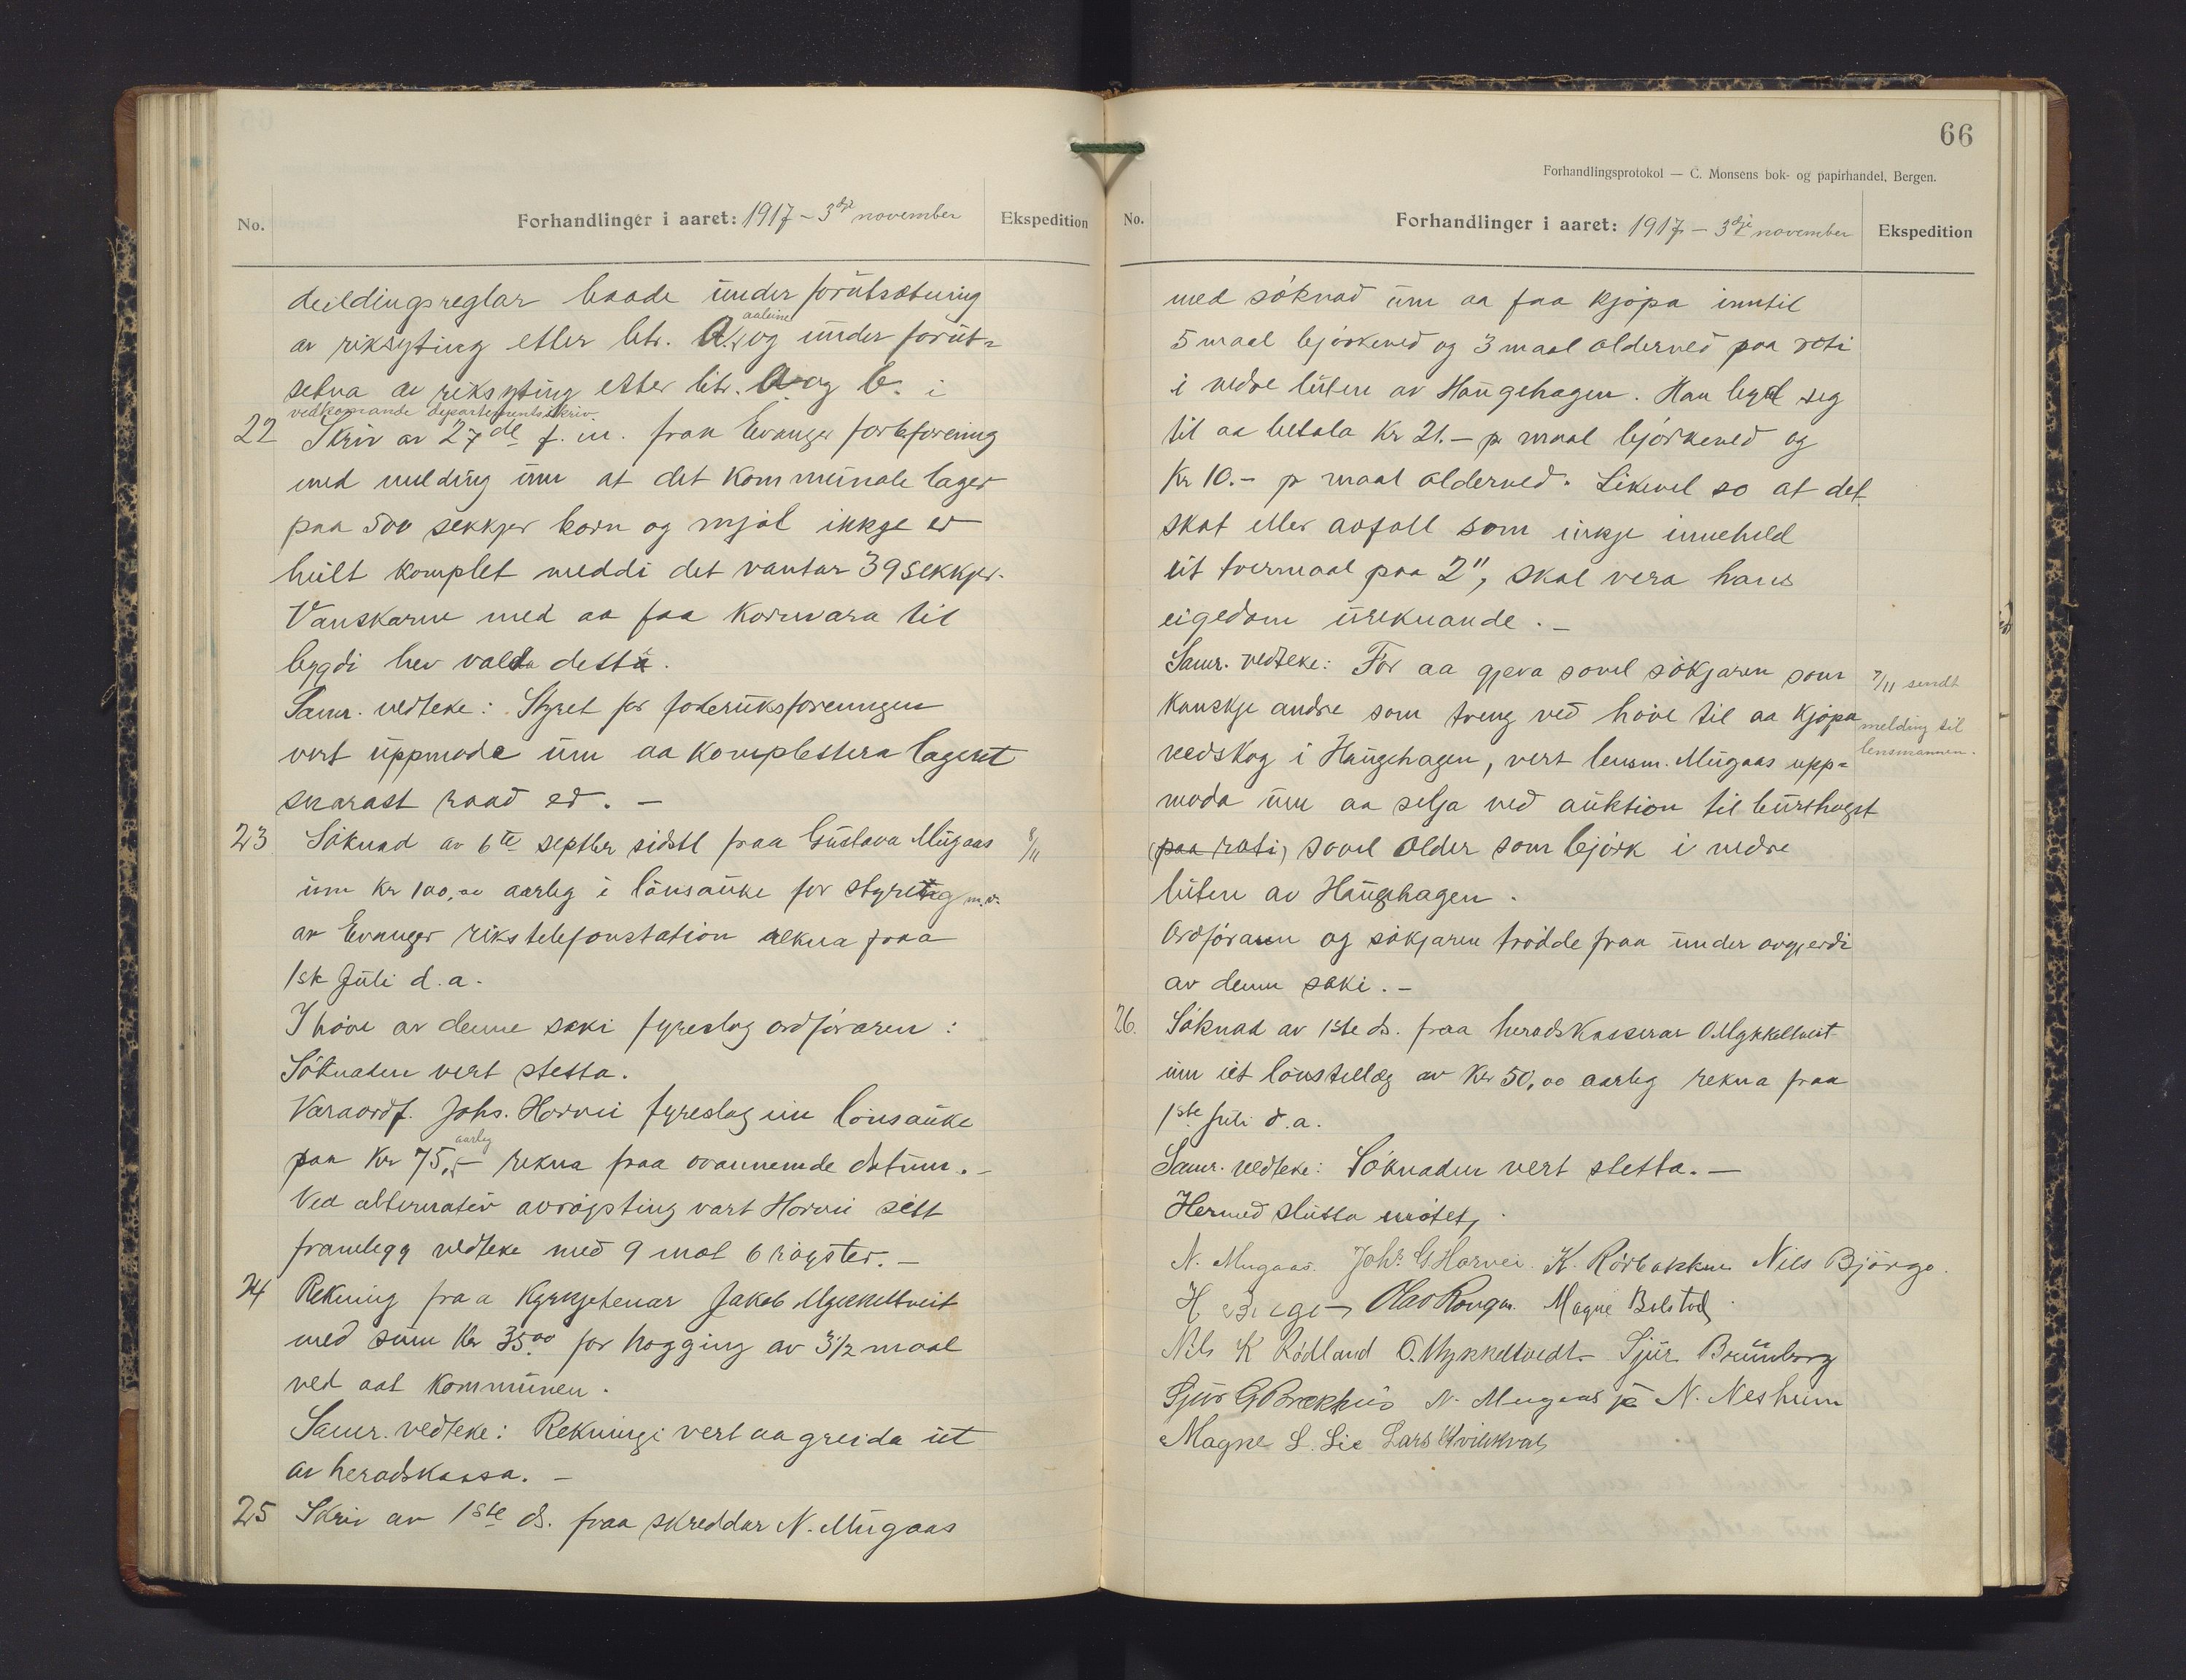 No.
Forhandlinger i aaret: 1917 - 3dje november
Ekspedition
deildingsreglar baade under forutsetning
av riksyting etter litr. A. aaleine og under forut-
setna av riksyting etter litr. A og b. i
vedkomande departementsskriv.
22 Skriv av 27de f. m. fraa Evanger forbforening
med melding um at det kommunale lager
paa 500 sekkjer korn og mjøl ikkje er
heilt komplet meddi det vantar 39 sekkjer.
Vanskarne med aa faa kornvara til
bygdi hev valda detta.
Samr. vedteke: Styret for forbruksforeningen
vert uppmoda um aa komplettera lageret
snarast raad er. —
23 Søknad av 6te septbr sidstl fraa Gustava Mugaas 8/11
um kr 100,00 aarleg i lønsauke for styring m.v.
av Evanger rikstelefonstation rekna fraa
1st Juli d.a.
I høve av denne saki fyreslog ordføraren:
Søknaden vert stetta.
Varaordf. Johs. Horvei fyreslog ein lønsauke
paa Kr 75,- aarleg rekna fraa ovannemde datum. -
Ved alternativ avrøysting vart Horvei sitt
framlegg vedteke med 9 mot 6 røyster. -
24 Rekning fraa Kyrkjetenar Jakob Mykkeltveit
med sum Kr 35.00 for hogging av 3½ maal
ved aat kommunen.
Samr. vedteke: Rekningi vert aa greida ut
av heradskassa. -
25 Skriv av 1ste ds. fraa skreddar N. Mugaas
66
Forhandlingsprotokol — C. Monsens bok- og papirhandel, Bergen.
No.
Forhandlinger i aaret: 1917 - 3dje november
Ekspedition
med søknad um aa faa kjøpa inntil
5 maal bjørkeved og 3 maal olderved paa roti
i nedre luten av Haugehagen. Han byd seg
til aa betala Kr 21.- pr maal bjørkeved og
Kr 10.- pr maal olderved. Likevel so at det
skat eller avfall som inkje inneheld
eit tvermaal paa 2", skal vera hans
eigedom ureknande. -
Samr. vedteke: For aa gjeva sovel søkjaren som
kanskje andre som treng ved høve til aa kjøpa
vedskog i Haugehagen, vert lensm. Mugaas upp-
moda um aa selja ved auktion til burthogst
(paa roti) sovel older som bjørk i nedre
luten av Haugehagen.
7/11 sendt
melding til
lensmannen.
Ordføraren og søkjaren trødde fraa under avgjerdi
av denne saki. -
26. Søknad av 1ste ds. fraa heradskasserar O Mykkeltveit
um eit lønstillæg av Kr 50,00 aarleg rekna fraa
1ste Juli d.a.
Samr. vedteke: Søknaden vert stetta. —
Hermed slutta møtet,
N. Mugaas. Johs G. Horvei. K. Rørbakken Nils Bjørgo.
H Olav Rongen. Magne Bolstad
Nils K Rødland O. Mykkeltvedt Sjur Brunborg
Sjur G Brekhus N. Mugaas N. Nesheim
Magne L. Lie Lars Kvilekval